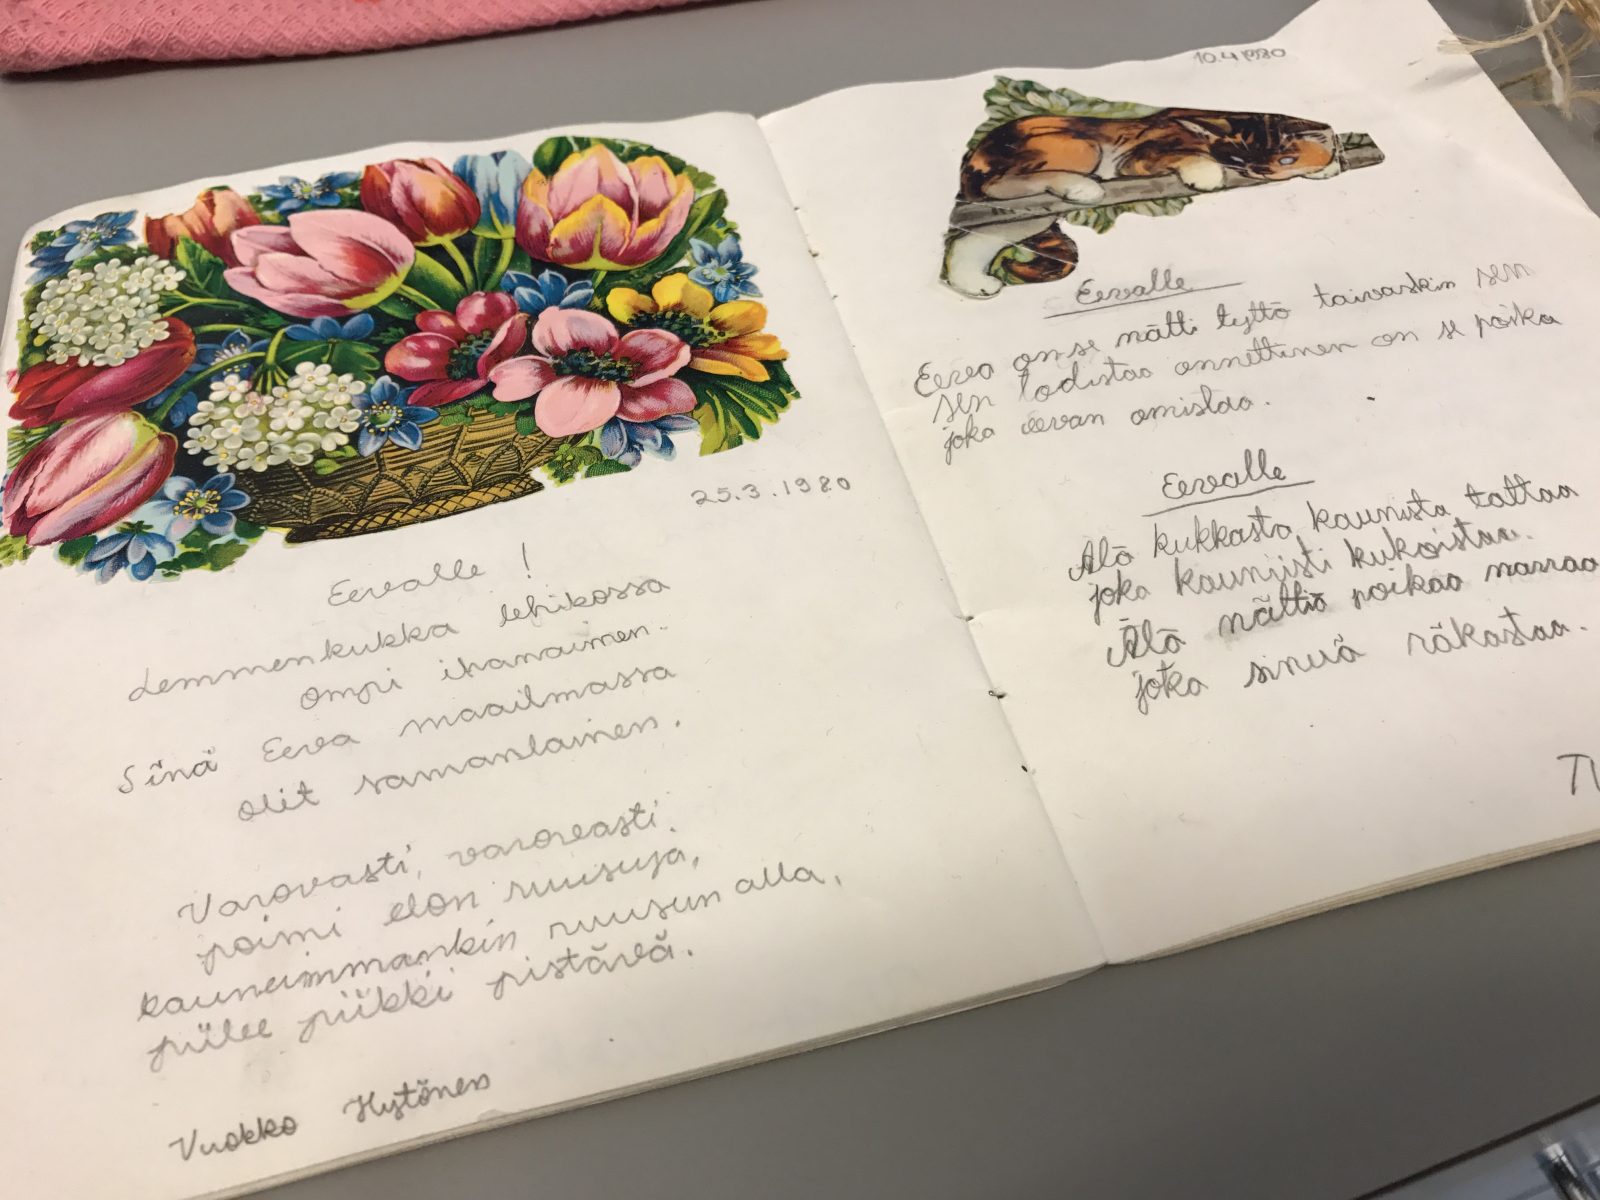 25.3.1980
Eevalle !
Lemmenkukka lehikossa
ompi ihanainen.
Sinä Eeva maailmassa
olit samanlainen.
Varovasti, varovasti.
poimi elon ruusuja,
kauneimmankin ruusun alla,
piilee piikki pistävä.
Vuokko Hytönen
10.4.1980
Eevalle
Eeva on se nätti tyttö taivaskin sen
sen todistaa onnettinen on se poika
joka eevan omistaa.
Eevalle
Älä kukkasta kaunista tattaa
joka kauniisti kukoistaa.
Älä nättiä poikaa narraa
joka sinuä räkastaa.